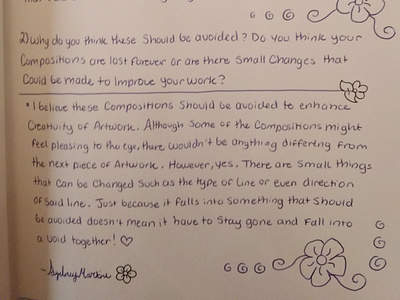 2) Why do you think these should be avoided? Do you think your
Compositions are lost forever or are there small Changes that
Could be made to Improve your work?
• I believe these Compositions should be avoided to enhance
Creativity of Artwork. Although some of the Compositions might
feel pleasing to the eye, there wouldn't be anything differing from
the next piece of Artwork. However, yes. There are small things
that can be changed such as the type of line or even direction
of said line. Just because it falls into something that should
be avoided doesn't mean it have to stay gone and fall into
a void together! ♡
~Sydney